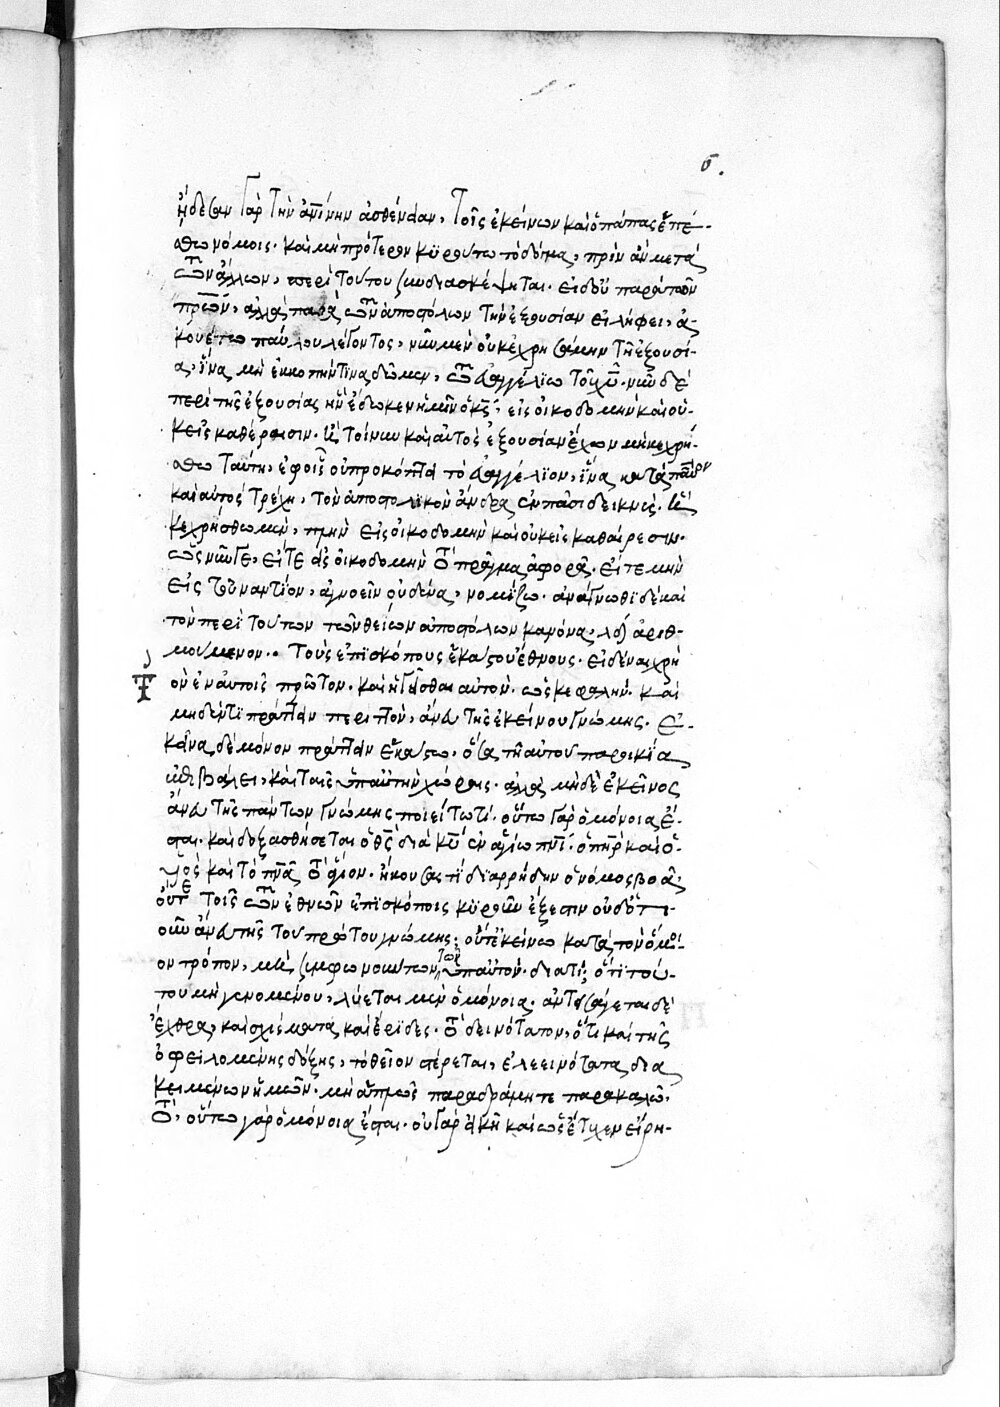 ς.
ᾔδεσαν γὰρ τὴν ἀνίνην ἀσθένειαν, τοῖς ἐκείνων καὶ ὁ πάπας ἑπέ-
σθω νόμοις. καὶ μὴ πρότερον κυρούτω τὸ δόγμα, πρὶν ἂν μετὰ
τῶν ἄλλων, περὶ τούτου συνδιασκέψηται. εἰ δ' οὐ παρὰ τῶν
πρῶν, ἀλλὰ παρὰ τῶν ἀποστόλων τὴν ἐξουσίαν εἰλήφει, ἀ-
κουέτω παύλου λέγοντος, νῦν μὲν οὐκ ἐχρησάμην τῇ ἐξουσί-
α, ἵνα μὴ ἐγκοπήν τινα δῶμεν, τῶ εὐαγγελίω τοῦ χυ. νῦν δὲ
περὶ τῆς ἐξουσίας ἧς ἔδωκεν ἡμῖν ὁ κς, εἰς οἰκοδομὴν καὶ οὐ-
κ εἰς καθαίρεσιν. εἰ τοίνυν καὶ αὐτὸς ἐξουσίαν ἔχων μὴ κεχρή-
σθω ταύτη, ἐφ' οἷς οὐ προκόπτει τὸ εὐαγγέλιον, ἵνα κατὰ παῦλον
καὶ αὐτὸς τρέχη, τὸν ἀποστολικὸν ἄνδρα ἐν πᾶσι δεικνύς. εἰ
κεχρήσθω μὲν, πλὴν εἰς οἰκοδομὴν καὶ οὐκ εἰς καθαίρεσιν.
ὡς νῦν γε, εἴτε εἰς οἰκοδομὴν τὸ πρᾶγμα ἀφορᾶ. εἴτε μὴν
εἰς τοὐναντίον, ἀγνοεῖν οὐδένα, νομίζω. ἀνάγνωθι δὲ καὶ
τὸν περὶ τούτων τῶν θείων ἀποστόλων κανόνα, λδ ἀριθ-
μούμενον. τοὺς ἐπισκόπους ἑκάστου ἔθνους. εἰδέναι χρὴ
τὸν ἐν αὐτοῖς πρῶτον. καὶ ἡγεῖσθαι αὐτὸν. ὡς κεφαλήν. καὶ
μηδέν τι πράττειν περιττὸν, ἄνευ τῆς ἐκείνου γνώμης. ἐ-
κεῖνα δὲ μόνον πράττειν ἕκαστον. ὅσα τῆ αὐτοῦ παροικία
ἐπιβάλλει, καὶ ταῖς ὑπ' αὐτὴν χώραις. ἀλλὰ μηδὲ ἐκεῖνος
ἄνευ τῆς πάντων γνώμης ποιείτω τί. οὕτω γὰρ ὁμόνοια ἔ-
σται. καὶ δοξασθήσεται ὁ θς διὰ κυ ἐν ἁγίω πνι. ὁ πηρ καὶ ὁ
υἱὸς καὶ τὸ πνα τὸ ἅγιον. ἤκουσας τί διαρρήδην ὁ νόμος βοᾶ;
οὔτε τοῖς τῶν ἐθνῶν ἐπισκόποις κυροῦν ἔξεστιν οὐδ' ὁτι-
οῦν ἄνευ τῆς τοῦ πρώτου γνώμης; οὔτ' ἐκείνω κατὰ τὸν ὅμοι-
ον τρόπον, μὴ συμφωνούντων τῶν ὑπ' αὐτόν. διατί; ὅτι τού-
του μὴ γενομένου, λύεται μὲν ὁμόνοια. ἀντεισάγεται δὲ
ἔχθρα, καὶ σχίσματα καὶ ἔριδες. τὸ δεινότατον, ὅτι καὶ τῆς
ὀφειλομένης δόξης, τὸ θεῖον στέρεται, ἐλεεινότατα δια
κειμένων ἡμῶν. μὴ ἁπλῶς παραδράμητε παρακαλῶ,
τὸ, οὕτω γὰρ ὁμόνοια ἔσται. οὐ γὰρ εἰκῆ καὶ ὡς ἔτυχεν εἴρη-